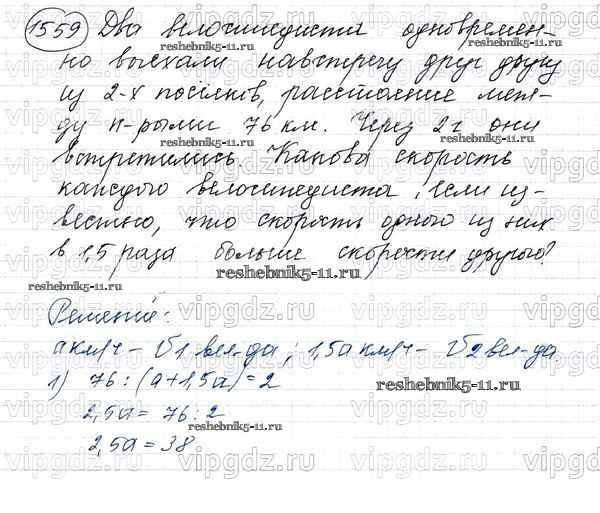 1559 Два велосипедиста одновремен-
но выехали навстречу друг другу
из 2-х посёлков, расстояние меж-
ду к-рыми 76 км. Через 2 ч они
встретились. Какова скорость
каждого велосипедиста, если из-
вестно, что скорость одного из них
в 1,5 раза больше скорости другого?
reshebnik5-11.ru
Решение:
a км/ч – V1 вел-да; 1,5a км/ч – V2 вел-да
1) 76 : (a+1,5a) = 2
2,5a = 76 : 2
2,5a = 38
vipgdz.ru